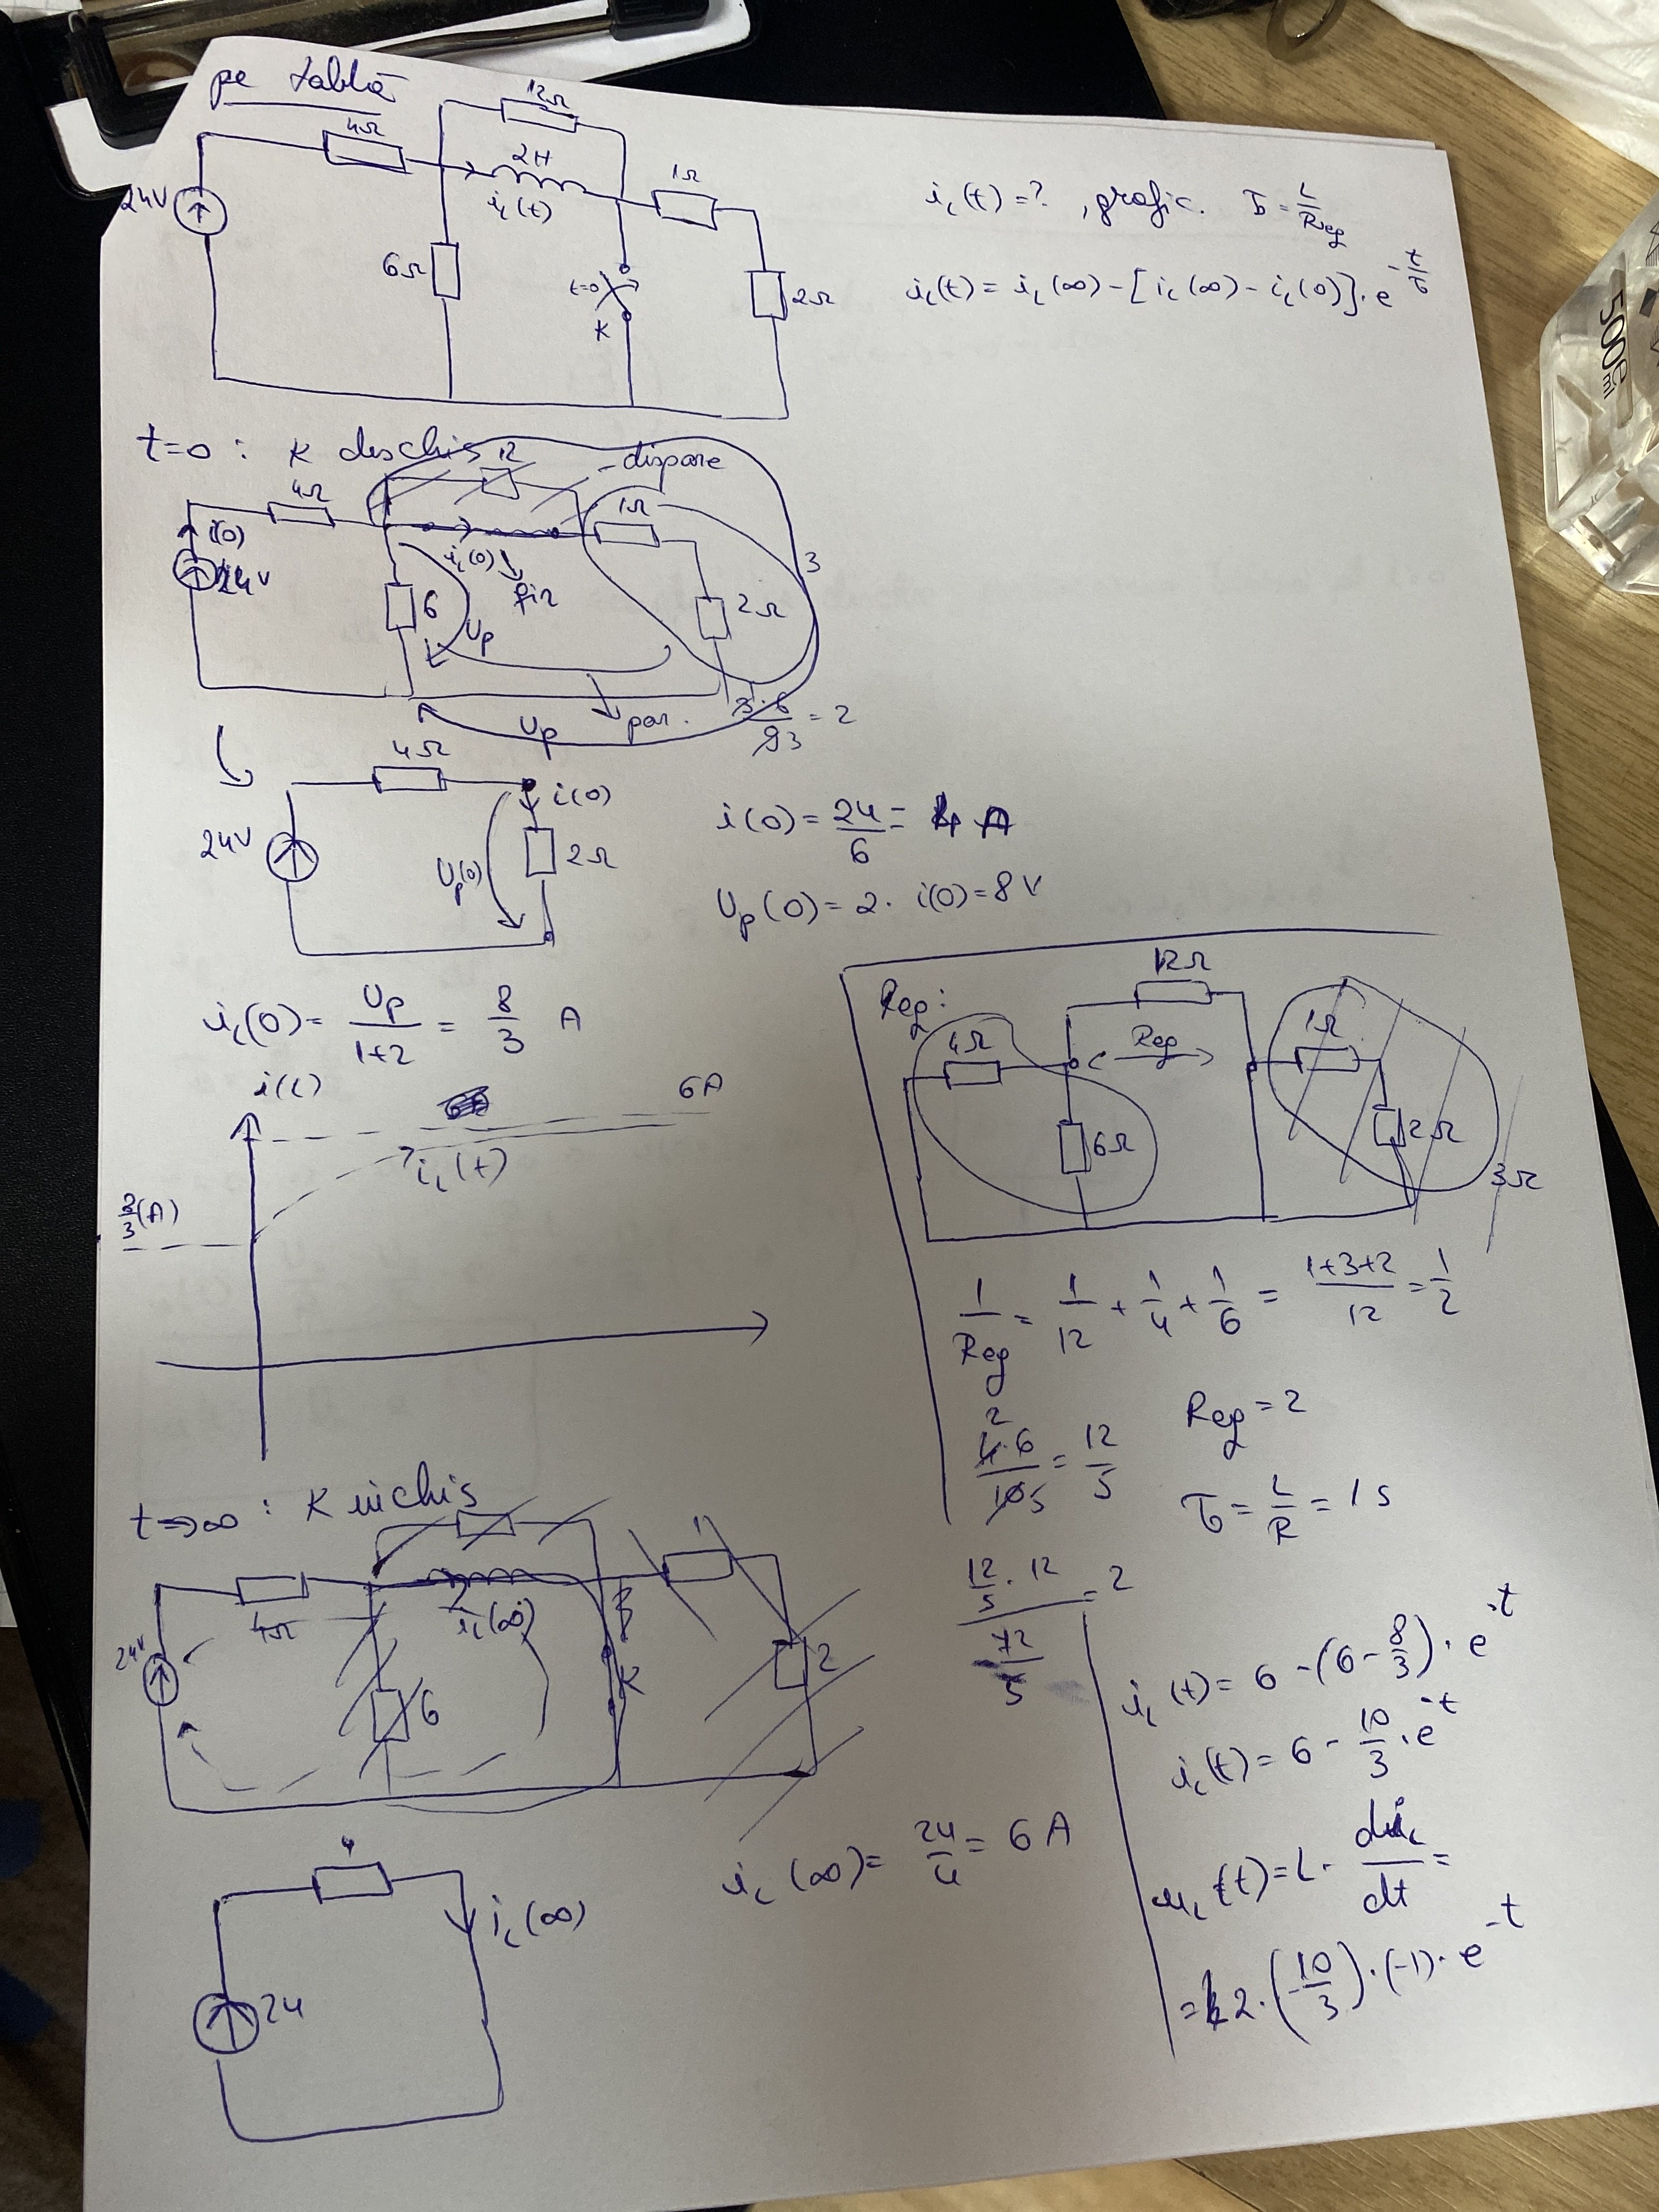 pe tablă
12Ω
4Ω
2H
iL(t)
1Ω
24V
6Ω
t=0
K
2Ω
iL(t) = ? , grafic. τ = L/Req
iL(t) = iL(∞) - [iL(∞) - iL(0)] · e^(-t/τ)
t=0 : K deschis
12
dispare
4Ω
1Ω
i(0)
24V
iL(0)
fir
3
6
Up
2Ω
Up
par.
3·6/93 = 2
4Ω
i(0)
24V
Up(0)
2Ω
i(0) = 24/6 = 4 A
Up(0) = 2 · i(0) = 8V
iL(0) = Up/1+2 = 8/3 A
i(L)
6A
iL(t)
8/3(A)
Req:
12Ω
4Ω
Req
1Ω
6Ω
2Ω
3Ω
1/Req = 1/12 + 1/4 + 1/6 = 1+3+2/12 = 1/2
2
4·6/105 = 12/5
Req = 2
τ = L/R = 1s
12/5 · 12
72/5
= 2
t→∞ : K închis
1
4Ω
iL(∞)
24V
6
K
2
iL(t) = 6 - (6 - 8/3) · e^-t
iL(t) = 6 - 10/3 · e^-t
4
iL(∞)
24
iL(∞) = 24/4 = 6 A
uL(t) = L · diL/dt =
= 2 · (-10/3) · (-1) · e^-t
500 ml